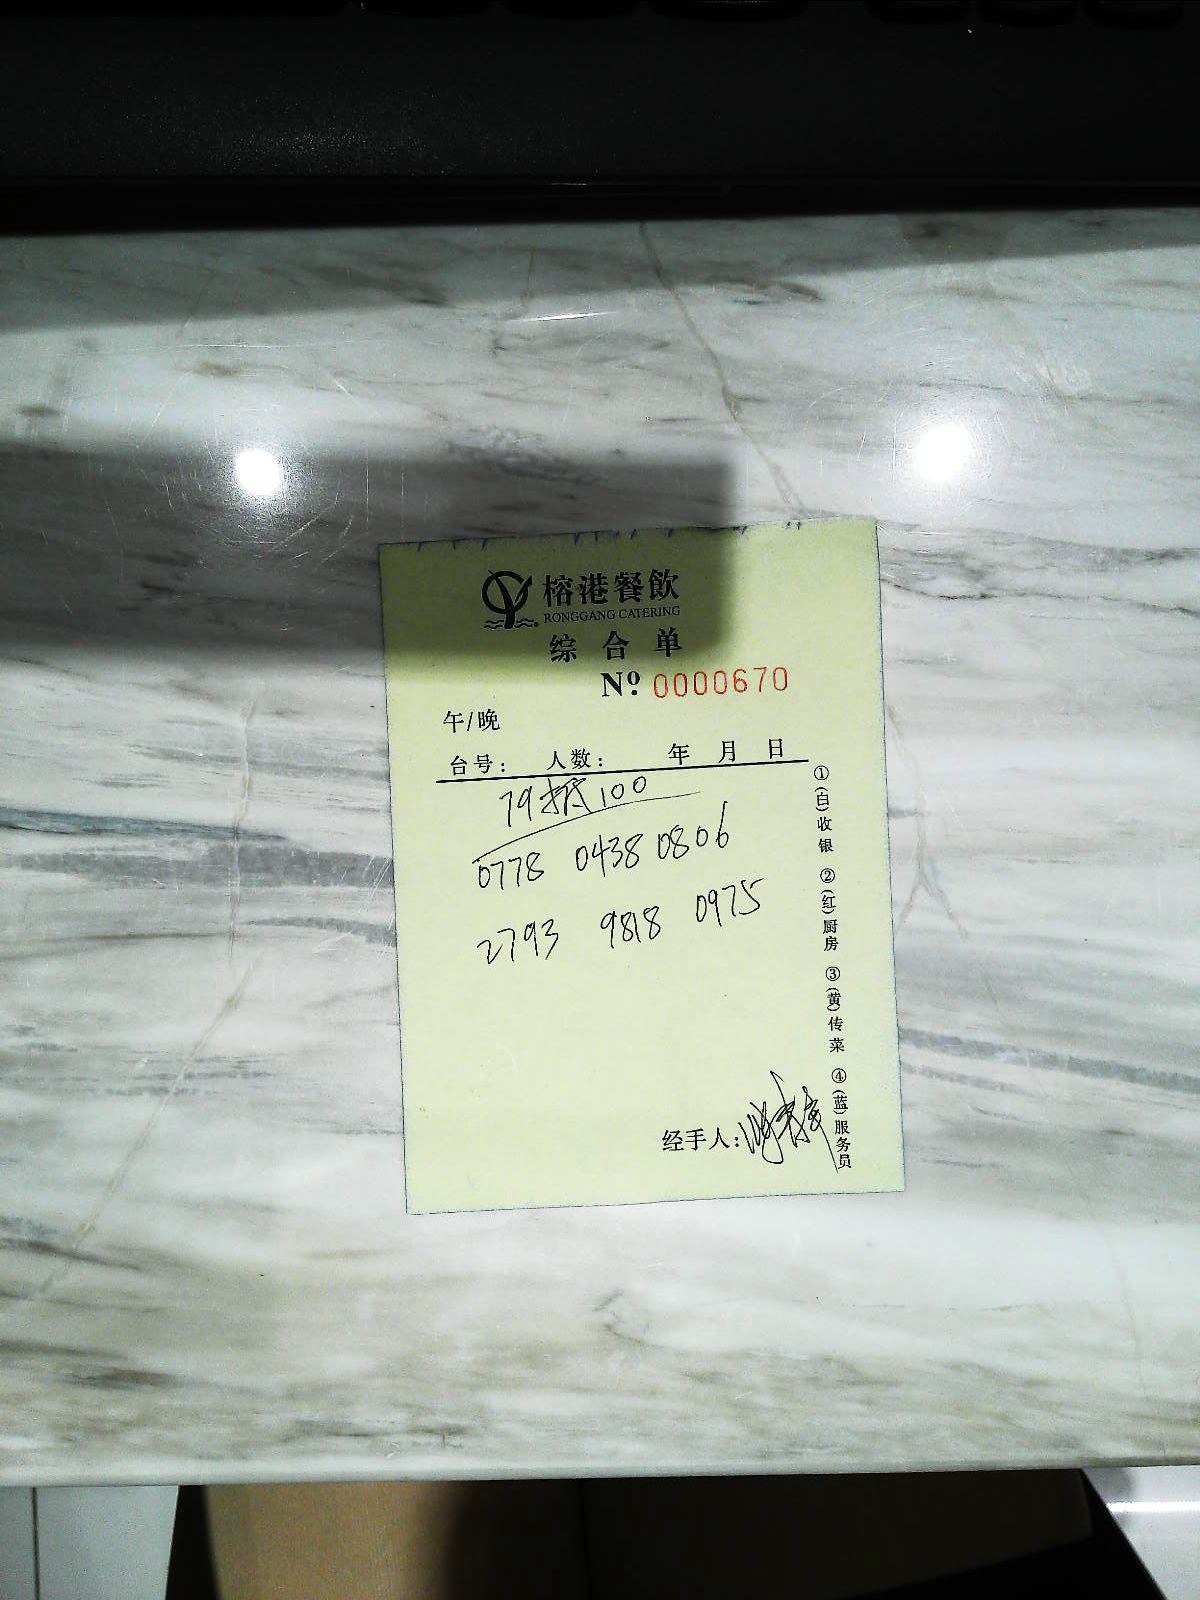 榕港餐飲
RONGGANG CATERING
综合单
Nº. 0000670
午/晚
台号: 人数: 年 月 日
79抵100
0778 0438 0806
2793 9818 0975
①(白)收银 ②(红)厨房 ③(黄)传菜 ④(蓝)服务员
经手人: